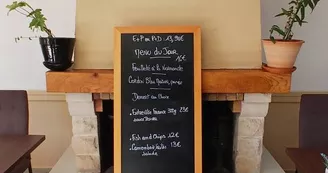 E+P ou P+D : 13,90€
Menu du Jour
16€
Feuilleté à la Normande
Cordon Bleu
Dessert au choix
Entrecôte France 300g 23€
Fish and Chips 12€
Camembert rôti 13€
salade